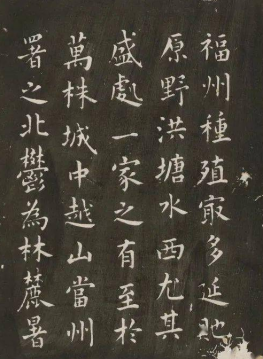 福州種殖㝡多延貤
原野洪塘水西尤其
盛處一家之有至於
萬株城中越山當州
署之北鬱為林麓暑